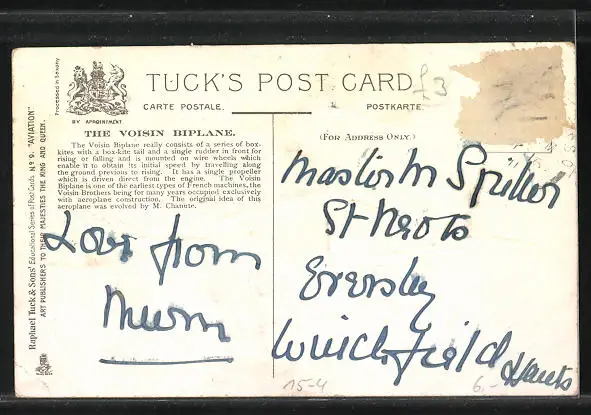 TUCK'S POST CARD
CARTE POSTALE.
POSTKARTE.
BY APPOINTMENT
Processed in Saxony
£3
THE VOISIN BIPLANE.
The Voisin Biplane really consists of a series of box-
kites with a box-kite tail and a single rudder in front for
rising or falling and is mounted on wire wheels which
enable it to obtain its initial speed by travelling along
the ground previous to rising. It has a single propeller
which is driven direct from the engine. The Voisin
Biplane is one of the earliest types of French machines, the
Voisin Brothers being for many years occupied exclusively
with aeroplane construction. The original idea of this
aeroplane was evolved by M. Chanute.
Raphael Tuck & Sons' Educational Series of Post Cards, No 9. "AVIATION"
ART PUBLISHERS TO THEIR MAJESTIES THE KING AND QUEEN.
Love from
Mum
(FOR ADDRESS ONLY.)
Master M Spiller
St Neots
Eversley
Winchfield Hants
15-4
6.-